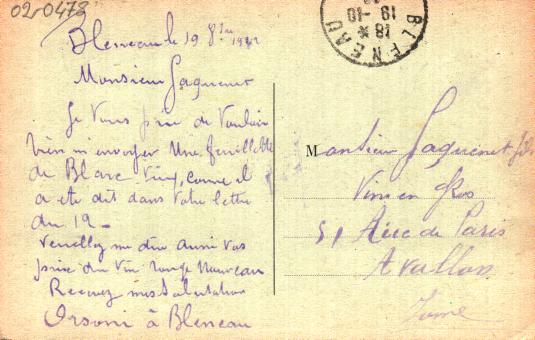 02-0473
Bleneau le 19 8bre
Monsieur Gaguenet
Je vous prie de Vouloir
bien m'envoyer une feuillette
de Blanc vieux, comme il
a été dit dans votre lettre
du 12 -
Veuillez me dire aussi vos
prix du vin rouge nouveau
Recevez mes salutation
Orsoni à Bleneau
BLENEAU
18 *
19 -10
Monsieur Gaguenet fils
Vins en Gros
51 Rue de Paris
Avallon
Yonne